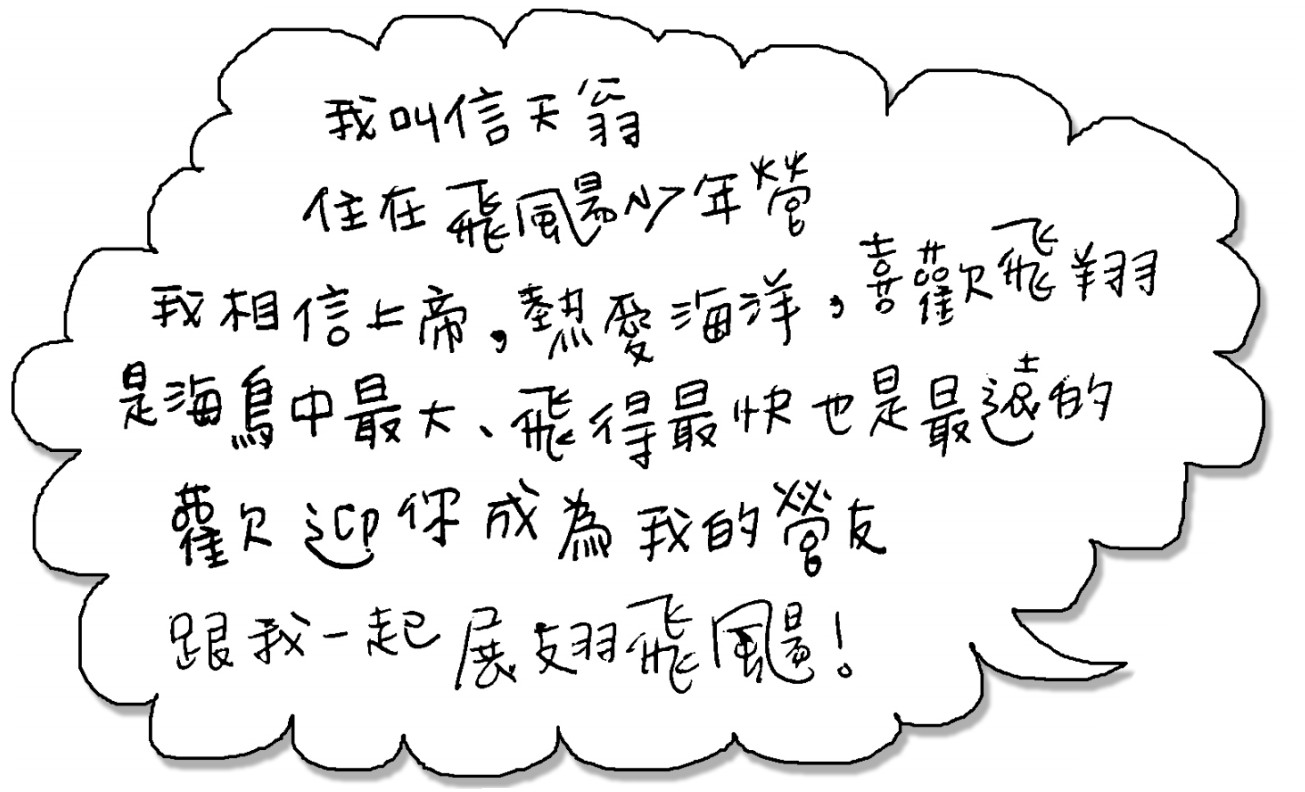 我叫信天翁
住在飛颺少年營
我相信上帝，熱愛海洋，喜歡飛翔
是海鳥中最大、飛得最快也是最遠的
歡迎你成為我的營友
跟我一起展翅飛颺！